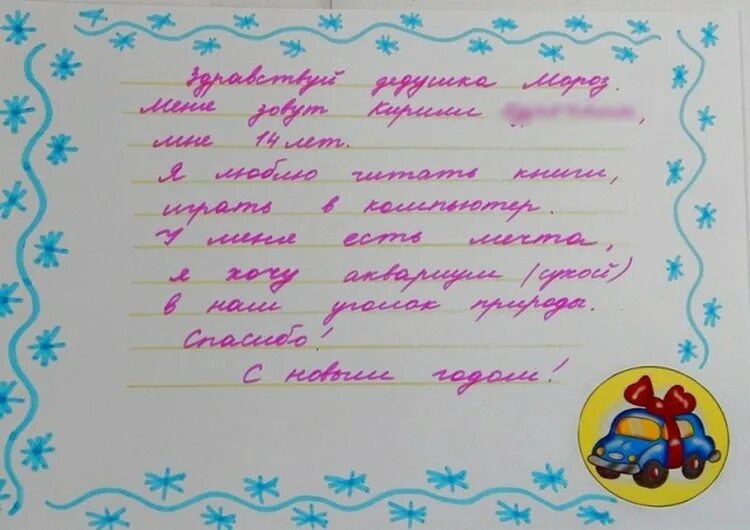 Здравствуй дедушка Мороз.
Меня зовут Кирилл ,
мне 14 лет.
Я люблю читать книги,
играть в компьютер.
У меня есть мечта,
я хочу аквариум (сухой)
в наш уголок природы.
Спасибо!
С новым годом!